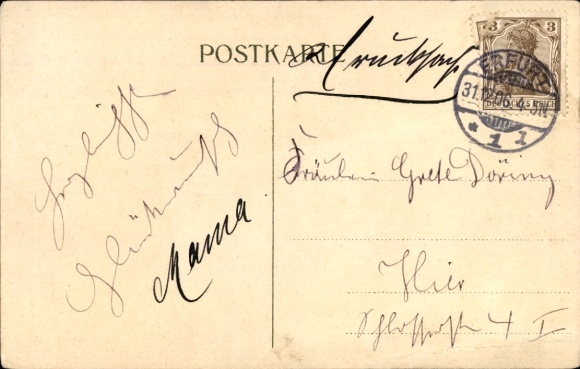 POSTKARTE
Drucksache
3 3
DEUTSCHES REICH
ERFURT
31.12.06. 4-5N
* 1 i
Herzlichst
Glückwunsch
Mama
Fräulein Grete Döring
Hier
Schlösserstr 4 I